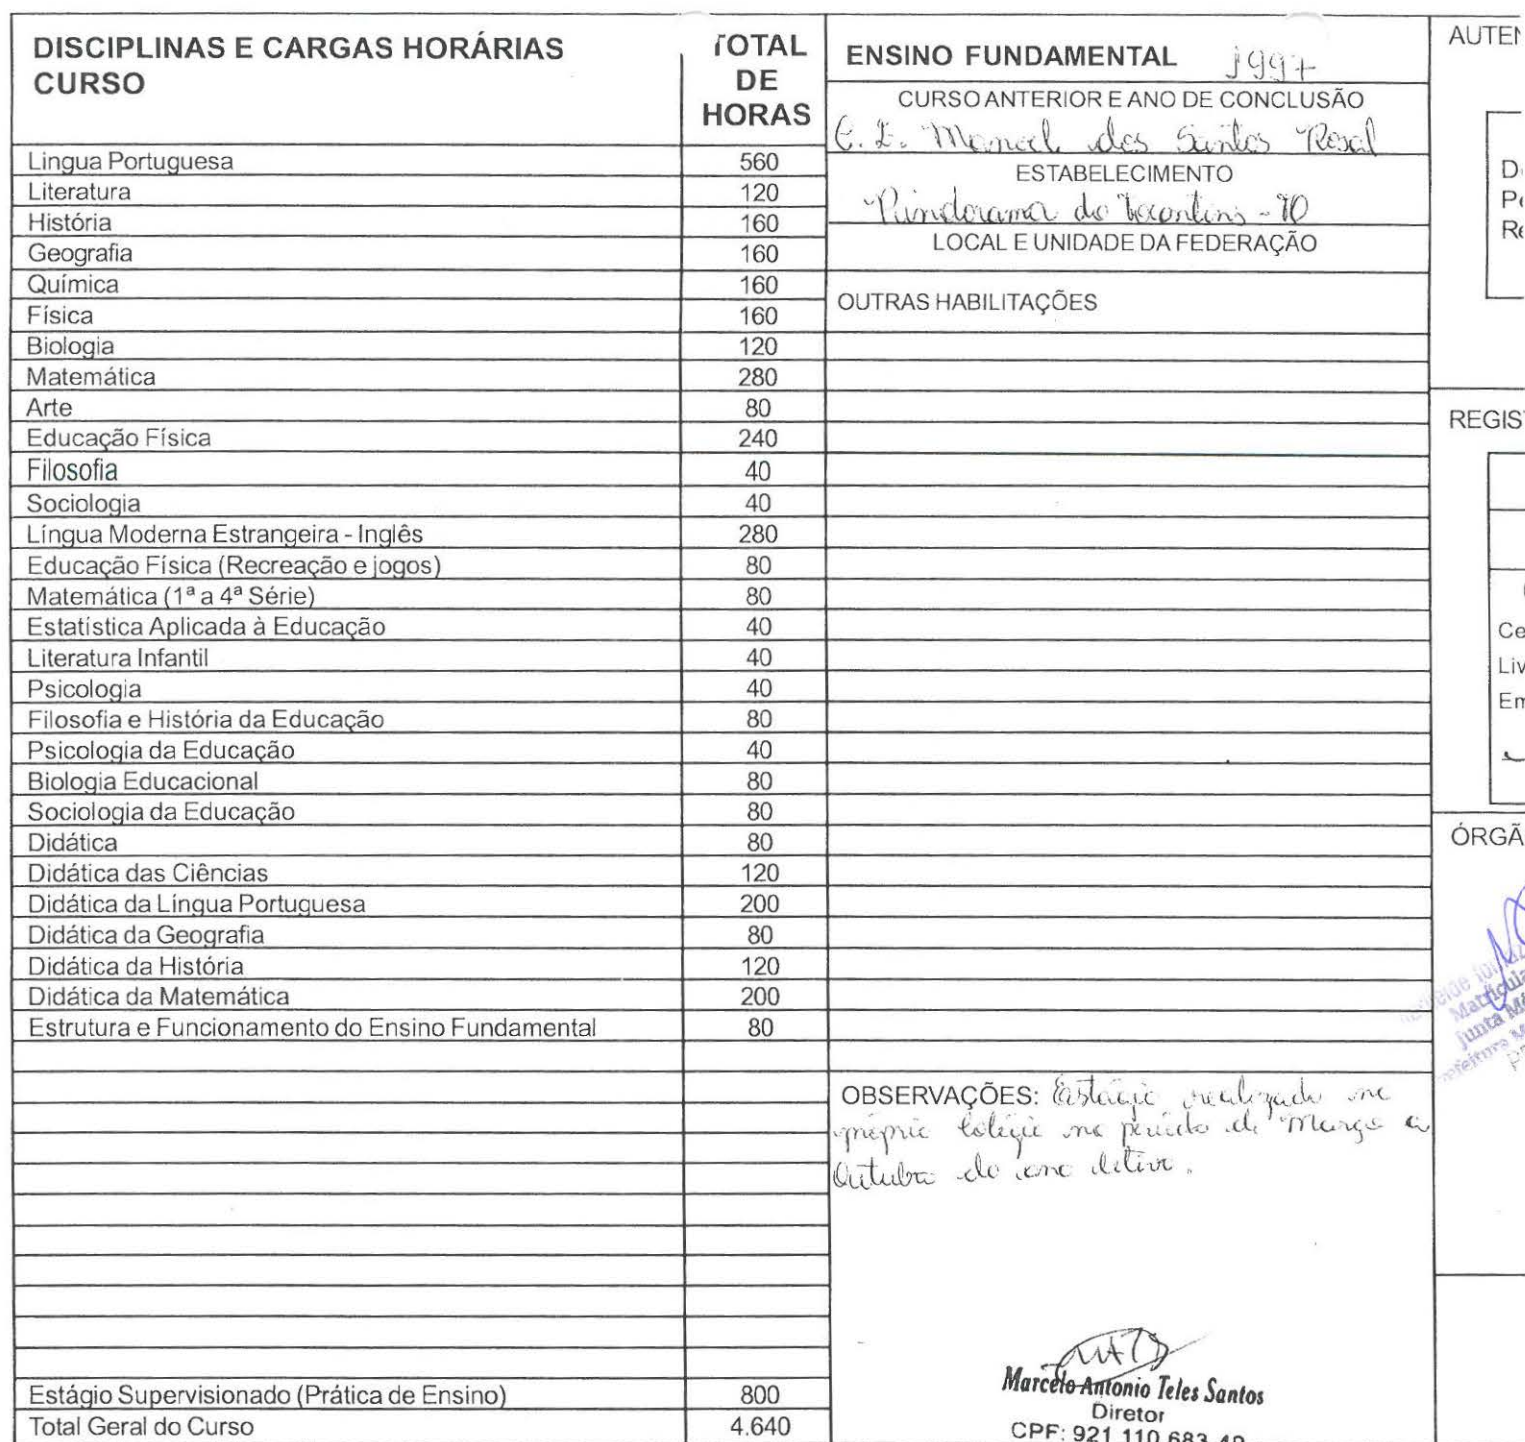 DISCIPLINAS E CARGAS HORÁRIAS
CURSO
TOTAL
DE
HORAS
Lingua Portuguesa 560
Literatura 120
História 160
Geografia 160
Química 160
Física 160
Biologia 120
Matemática 280
Arte 80
Educação Física 240
Filosofia 40
Sociologia 40
Língua Moderna Estrangeira - Inglês 280
Educação Física (Recreação e jogos) 80
Matemática (1ª a 4ª Série) 80
Estatística Aplicada à Educação 40
Literatura Infantil 40
Psicologia 40
Filosofia e História da Educação 80
Psicologia da Educação 40
Biologia Educacional 80
Sociologia da Educação 80
Didática 80
Didática das Ciências 120
Didática da Língua Portuguesa 200
Didática da Geografia 80
Didática da História 120
Didática da Matemática 200
Estrutura e Funcionamento do Ensino Fundamental 80
Estágio Supervisionado (Prática de Ensino) 800
Total Geral do Curso 4.640
ENSINO FUNDAMENTAL 1997
CURSO ANTERIOR E ANO DE CONCLUSÃO
C. E. Manoel dos Santos Rosal
ESTABELECIMENTO
Pindorama do Tocantins - TO
LOCAL E UNIDADE DA FEDERAÇÃO
OUTRAS HABILITAÇÕES
OBSERVAÇÕES: Estágio realizado no
próprio Colégio no período de Março a
Outubro do ano letivo.
Marcelo Antonio Teles Santos
Diretor
CPF: 921 110 683-49
AUTEN
REGIS
Ce
Liv
Em
ÓRGÃ
Matrícula
Junta Mé